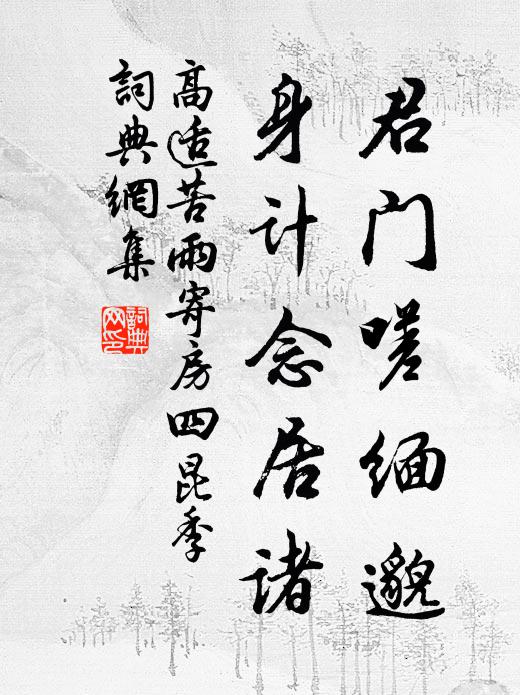 君门嗟缅邈
身计念居诸
高适苦雨寄房四昆季
詞典網集
詞典网印